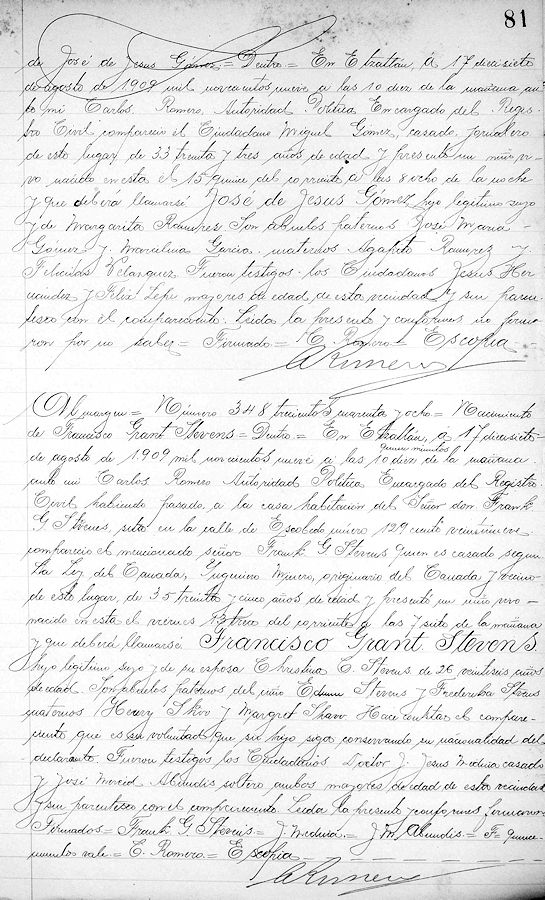 81
de José de Jesus Gomez = Dentro = En Etzatlán, á 17 diecisiete
de agosto de 1909 mil novecientos nueve a las 10 diez de la mañana an-
te mi Carlos Romero, Autoridad Politica Encargado del Regis-
tro Civil compareció el Ciudadano Miguel Gómez, casado, jornalero
de este lugar, de 33 treinta y tres años de edad y presentó un niño vi-
vo nacido en esta el 15 quince del corriente a las 8 ocho de la noche
y que deberá llamarse José de Jesus Gomez, hijo legitimo suyo
y de Margarita Ramirez. Son abuelos paternos José Maria
Gómez y Marcelina Garcia, maternos Agapito Ramirez y
Felicitas Velazquez. Fueron testigos los Ciudadanos Jesus Her-
nandez y Felix Lepe mayores de edad, de esta vecindad y sin paren-
tesco con el compareciente. Leida la presente y conformes no firma-
ron por no saber = Firmado = C. Romero = Es copia
C Romero
Al margen = Número 348 trecientos cuarenta y ocho = Nacimiento
de Francisco Grant Stevens = Dentro = En Etzatlán, á 17 diecisiete
quince minutos
de agosto de 1909 mil novecientos nueve a las 10 diez de la mañana
ante mi Carlos Romero Autoridad Politica Encargado del Registro
Civil habiendo pasado a la casa habitación del Señor don Frank
G Stevens, sita en la calle de Escobedo número 129 ciento veintinueve
compareció el mencionado señor Frank G Stevens quien es casado segun
la Ley del Canada, Yngeniero Minero, originario del Canada y vecino
de este lugar, de 35 treinta y cinco años de edad y presentó un niño vivo
nacido en esta el viernes 13 trece del corriente a las 7 siete de la mañana
y que deberá llamarse Francisco Grant Stevens
hijo legitimo suyo y de su esposa Christina C. Stevens de 26 veintiseis años
de edad. Son abuelos paternos del niño Stevens y Stevens
maternos Henry y Margret Shaw. Hace constar el compare-
ciente que es su voluntad que su hijo siga conservando su nacionalidad del
declarante. Fueron testigos los Ciudadanos Doctor J. Jesus Medina casado
y José Merced soltero ambos mayores de edad de esta vecindad
y sin parentesco con el compareciente. Leida la presente y conformes firmaron
Firmados = Frank G. Stevens = J. Medina = J M = quince
minutos vale = C. Romero = Es copia
C Romero